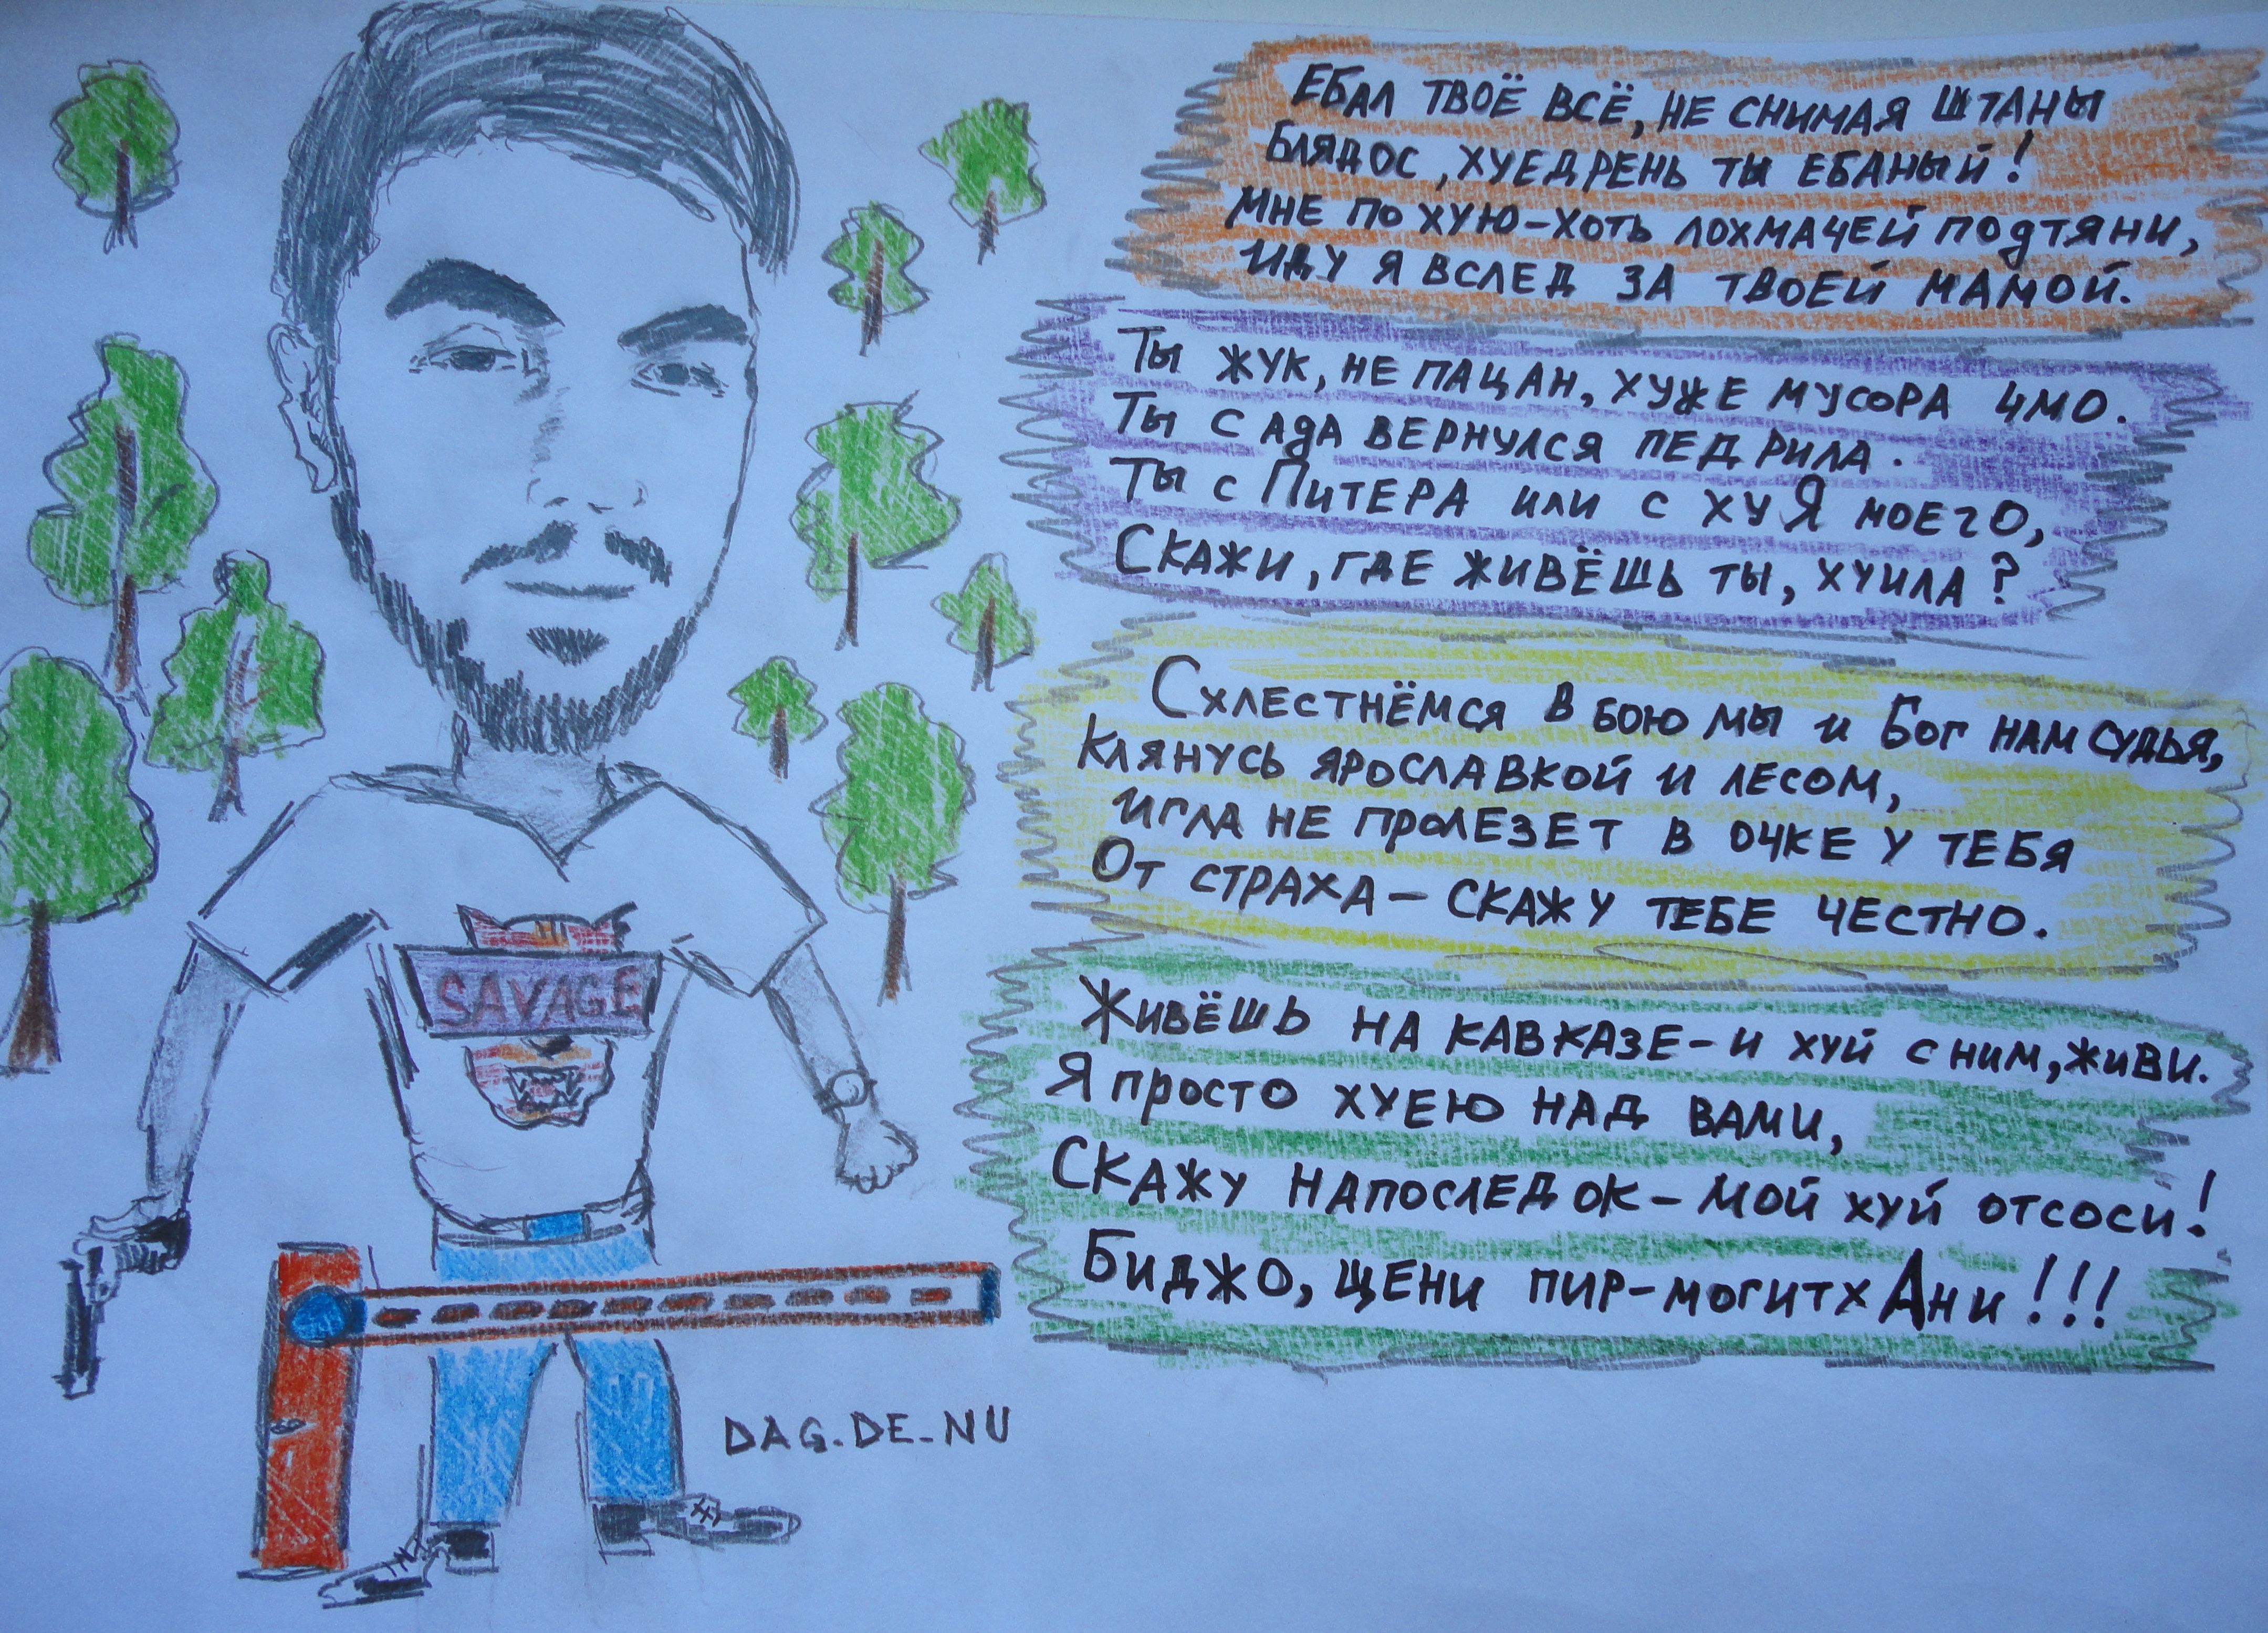 SAVAGE
DAG.DE_NU
ЕБАЛ ТВОЁ ВСЁ, НЕ СНИМАЯ ШТАНЫ
БЛЯДОС, ХУЕДРЕНЬ ТЫ ЕБАНЫЙ!
МНЕ ПО ХУЮ-ХОТЬ ЛОХМАЧЕЙ ПОДТЯНИ,
ИДУ Я ВСЛЕД ЗА ТВОЕЙ МАМОЙ.
ТЫ ЖУК, НЕ ПАЦАН, ХУЖЕ МУСОРА ЧМО.
ТЫ С АДА ВЕРНУЛСЯ ПЕДРИЛА.
ТЫ С ПИТЕРА ИЛИ С ХУЯ МОЕГО,
СКАЖИ, ГДЕ ЖИВЁШЬ ТЫ, ХУИЛА?
СХЛЕСТНЁМСЯ В БОЮ МЫ И БОГ НАМ СУДЬЯ,
КЛЯНУСЬ ЯРОСЛАВКОЙ И ЛЕСОМ,
ИГЛА НЕ ПРОЛЕЗЕТ В ОЧКЕ У ТЕБЯ
ОТ СТРАХА - СКАЖУ ТЕБЕ ЧЕСТНО.
ЖИВЁШЬ НА КАВКАЗЕ - И ХУЙ С НИМ, ЖИВИ.
Я ПРОСТО ХУЕЮ НАД ВАМИ,
СКАЖУ НАПОСЛЕДОК - МОЙ ХУЙ ОТСОСИ!
БИДЖО, ЩЕНИ ПИР-МОГИТХАНИ!!!